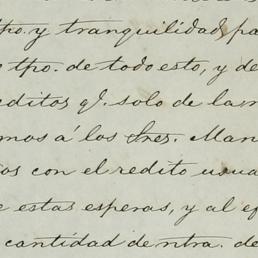 tpo. y tranquilidad, pa
tpo. de todo esto, y de
editos q.l solo de la m
mos á los Sres. Man
os con el redito usua
e estas esperas, y al ef
cantidad de ntra. de